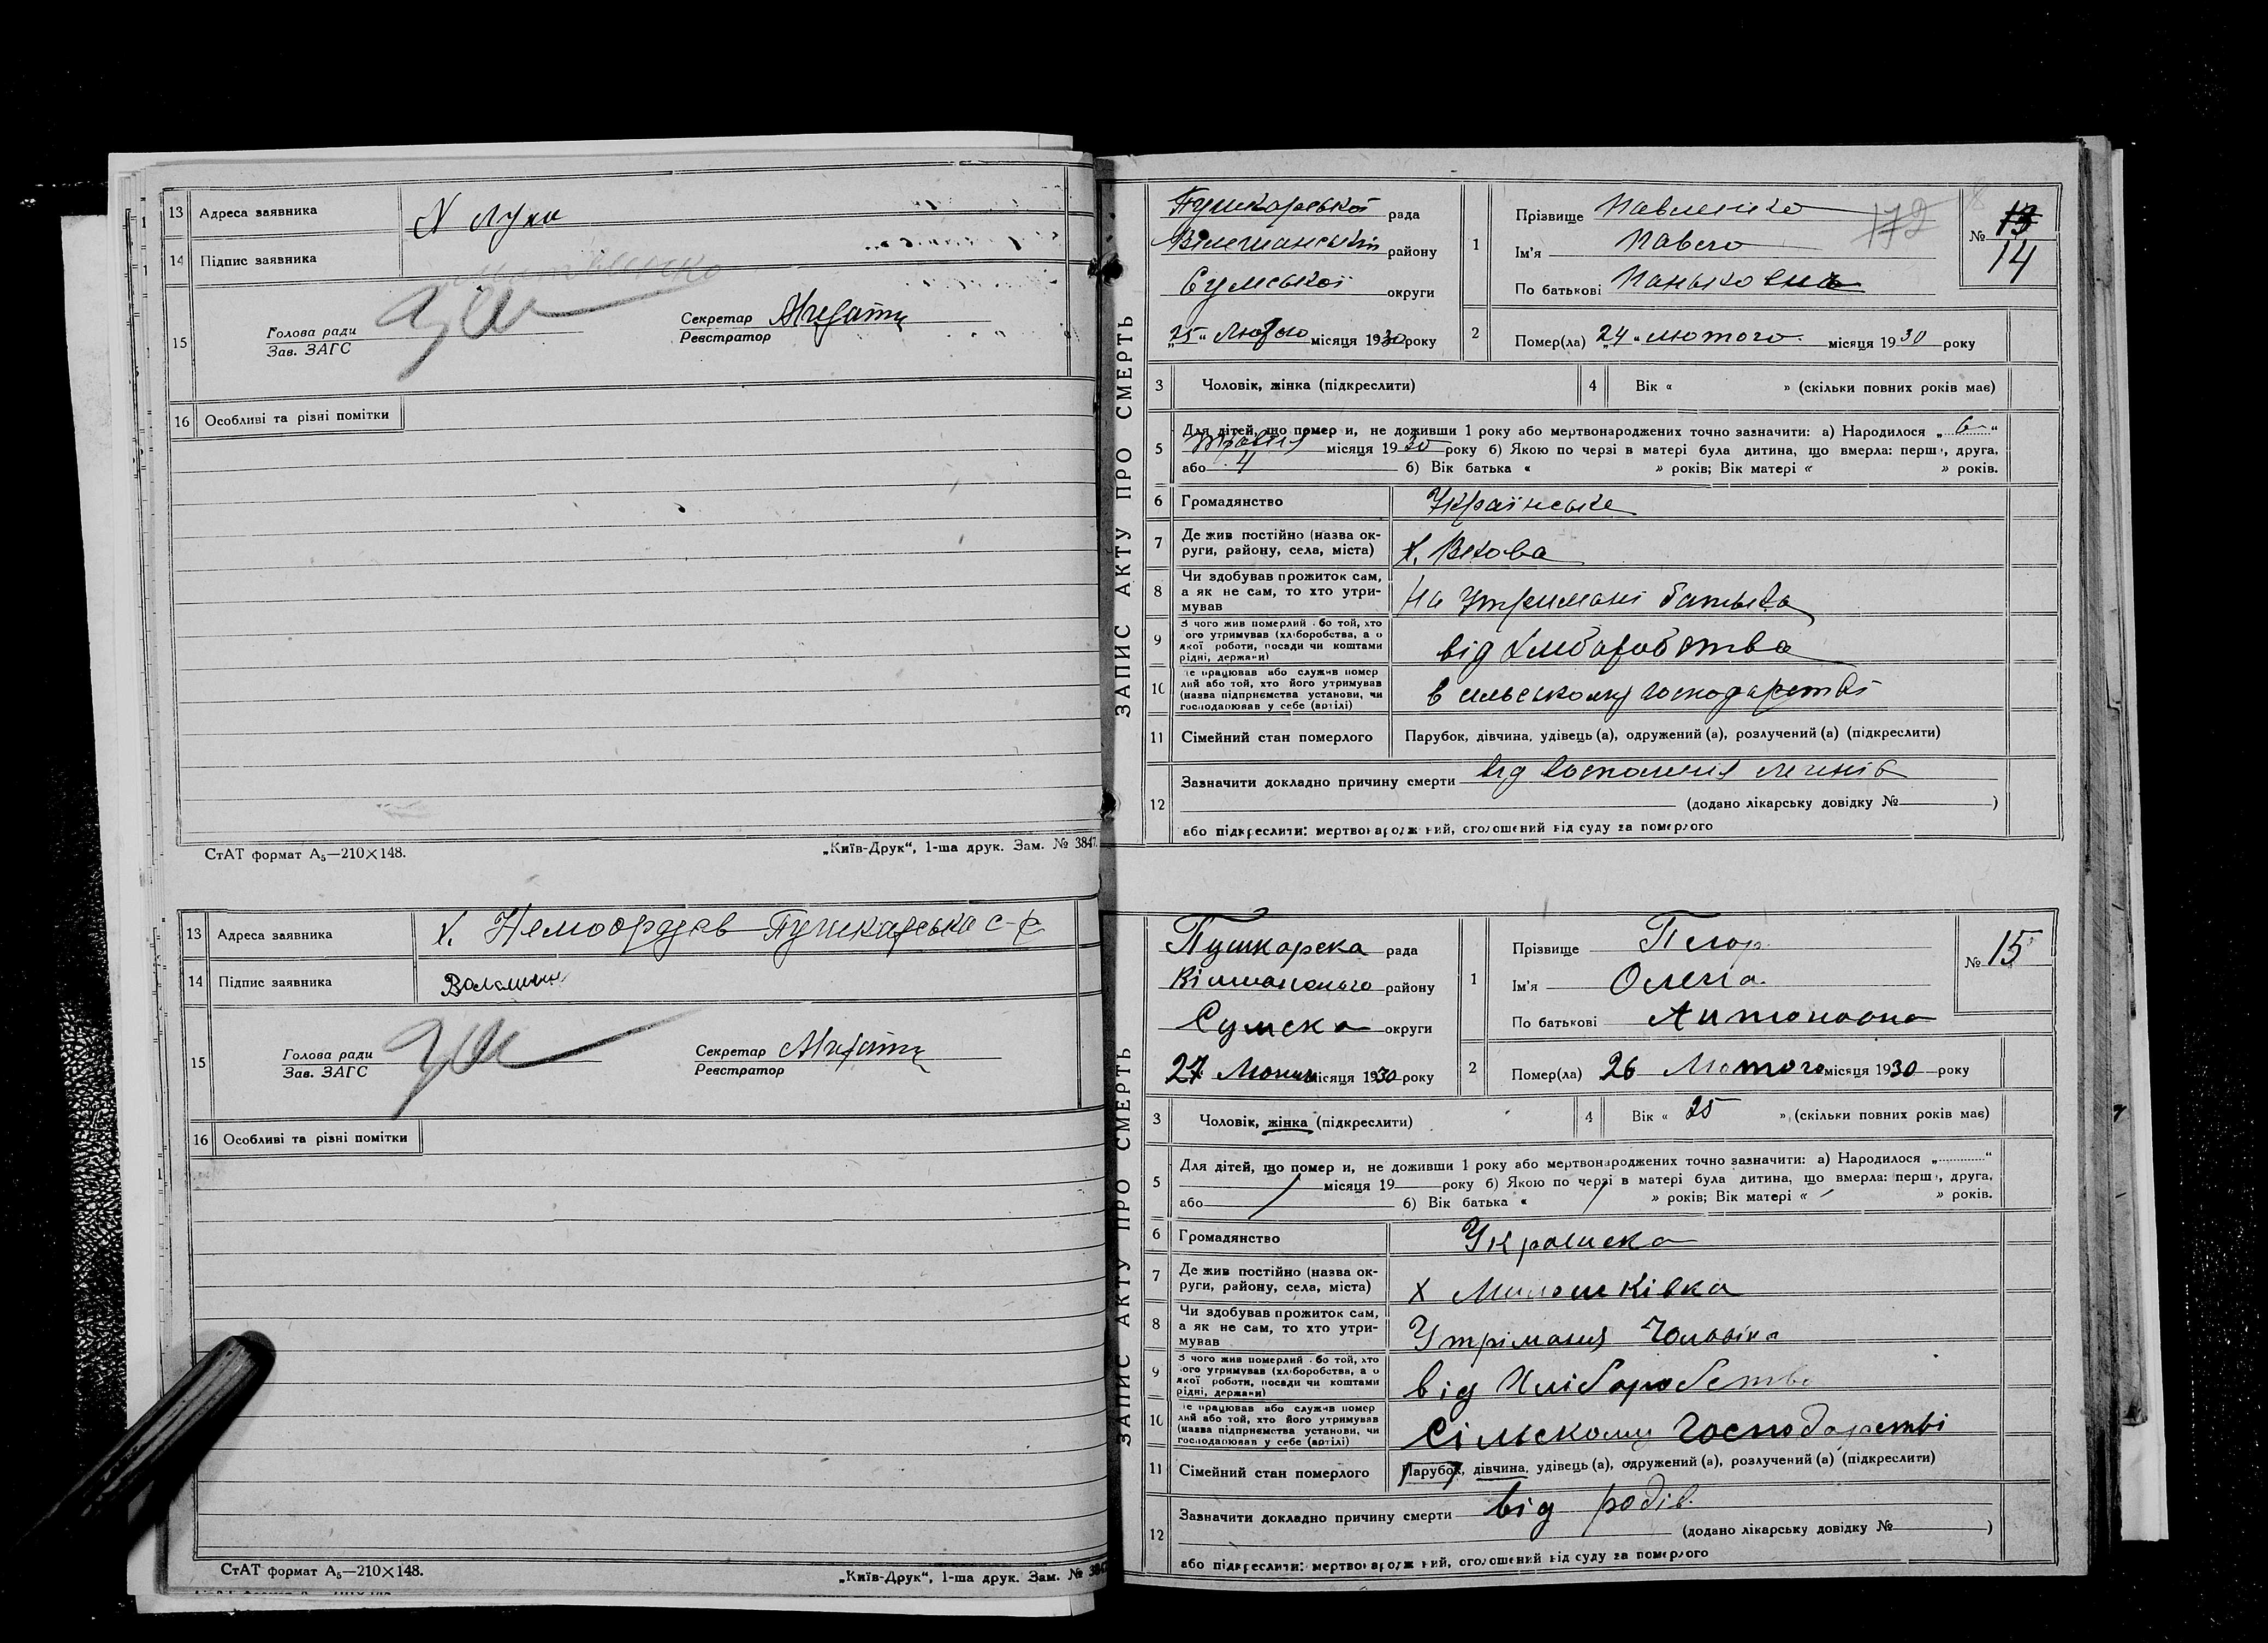 13 Адреса заявника
14 Підпис заявника
15 Голова ради
Зав. ЗАГС
Секретар
Реєстратор
16 Особливі та різні помітки
СтАТ формат А₅—210×148. „Київ-Друк“, 1-ша друк. Зам. № 3847.
13 Адреса заявника х. Пушкарська с-р
14 Підпис заявника
15 Голова ради
Зав. ЗАГС
Секретар
Реєстратор
16 Особливі та різні помітки
СтАТ формат А₅—210×148. „Київ-Друк“, 1-ша друк. Зам. № 384
ЗАПИС АКТУ ПРО СМЕРТЬ
Пушкарської рада
району
Сумської округи
„25“ Лютого місяця 1930 року
1 Прізвище Павленко
172
Ім'я Павло
По батькові
№ 13
14
2 Помер(ла) „24“ лютого місяця 1930 року
3 Чоловік, жінка (підкреслити) 4 Вік « » (скільки повних років має)
5 Для дітей, що помер и, не доживши 1 року або мертвонароджених точно зазначити: а) Народилося „ 6 “
місяця 1930 року б) Якою по черзі в матері була дитина, що вмерла: перш , друга,
або 4 б) Вік батька « » років; Вік матері « » років.
6 Громадянство Українське
7 Де жив постійно (назва ок-
руги, району, села, міста) х.
8 Чи здобував прожиток сам,
а як не сам, то хто утри-
мував На утримані батька
9 З чого жив померлий бо той, хто
ого утримував (хліборобства, а о
якої роботи, посади чи коштами
рідні, держави) від хліборобства
10 е працював або служив помер
лий або той, хто його утримував
(назва підприємства установи, чи
господарював у себе (артілі) в сільському господарстві
11 Сімейний стан померлого Парубок, дівчина, удівець (а), одружений (а), розлучений (а) (підкреслити)
12 Зазначити докладно причину смерти від восполения легенів
(додано лікарську довідку № )
або підкреслити: мертвонародж ний, оголошений від суду за померлого
ЗАПИС АКТУ ПРО СМЕРТЬ
Пушкарска рада
району
Сумска округи
27 місяця 1930 року
1 Прізвище
Ім'я Олена
По батькові Антоновна
№ 15
2 Помер(ла) 26 Лютого місяця 1930 року
3 Чоловік, жінка (підкреслити) 4 Вік « 25 » (скільки повних років має)
5 Для дітей, що помер и, не доживши 1 року або мертвонароджених точно зазначити: а) Народилося „ “
місяця 19 року б) Якою по черзі в матері була дитина, що вмерла: перш , друга,
або б) Вік батька « » років; Вік матері « » років.
6 Громадянство
7 Де жив постійно (назва ок-
руги, району, села, міста) х
8 Чи здобував прожиток сам,
а як не сам, то хто утри-
мував Утріманя Чоловіка
9 З чого жив померлий бо той, хто
ого утримував (хліборобства, а о
якої роботи, посади чи коштами
рідні, держави) від Хліборобства
10 е працював або служив помер
лий або той, хто його утримував
(назва підприємства установи, чи
господарював у себе (артілі) Сільскому господарстві
11 Сімейний стан померлого Парубок, дівчина, удівець (а), одружений (а), розлучений (а) (підкреслити)
12 Зазначити докладно причину смерти від родів.
(додано лікарську довідку № )
або підкреслити: мертвонародж ний, оголошений від суду за померлого